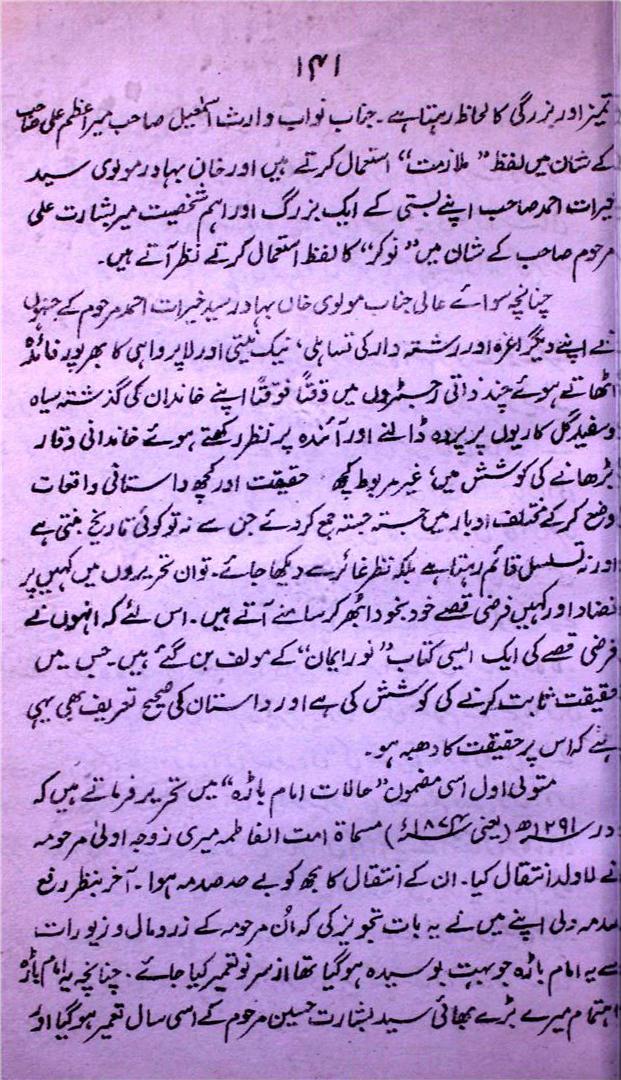 ۱۴۱
تمیز اور بزرگی کا لحاظ رہتا ہے۔ جناب نواب وارث اسمٰعیل صاحب میر اعظم علی صاحب
کے شان میں لفظ "ملازمت" استعمال کرتے ہیں اور خان بہادر مولوی سید
خیرات احمد صاحب اپنے بستی کے ایک بزرگ اور اہم شخصیت میر بشارت علی
مرحوم صاحب کے شان میں "نوکر" کا لفظ استعمال کرتے نظر آتے ہیں۔
چنانچہ سوائے عالی جناب مولوی خاں بہادر سید خیرات احمد مرحوم کے جنہوں
نے اپنے دیگر اعزہ اور رشتہ دار کی تساہلی، نیک نیتی اور لاپرواہی کا بھرپور فائدہ
اٹھاتے ہوئے چند ذاتی رجسٹروں میں وقتاً فوقتاً اپنے خاندان کی گذشتہ سیاہ
و سفید گل کاریوں پر پردہ ڈالنے اور آئندہ پر نظر رکھتے ہوئے خاندانی وقار
بڑھانے کی کوشش میں، غیر مربوط کچھ حقیقت اور کچھ داستانی واقعات
وضع کر کے مختلف ادبار میں جستہ جستہ جمع کر دئے جن سے نہ تو کوئی تاریخ بنتی ہے
اور نہ تسلسل قائم رہتا ہے بلکہ نظر غائر سے دیکھا جائے۔ تو ان تحریروں میں کہیں پر
تضاد اور کہیں فرضی قصے خود بخود ابھر کر سامنے آتے ہیں۔ اس لئے کہ انہوں نے
فرضی قصے کی ایک ایسی کتاب "نور ایمان" کے مولف بن گئے ہیں۔ جس میں
حقیقت ثابت کرنے کی کوشش کی ہے اور داستان کی صحیح تعریف بھی یہی
ہے کہ اس پر حقیقت کا دھبہ ہو۔
متولی اول اسی مضمون "حالات امام باڑہ" میں تحریر فرماتے ہیں کہ
در ۱۲۹۱ھ (یعنی ۱۸۷۴ء) مسماۃ امت الفاطمہ میری زوجہ اولیٰ مرحومہ
نے لاولد انتقال کیا۔ ان کے انتقال کا مجھ کو بے حد صدمہ ہوا۔ آخر بنظر رفع
صدمہ دلی اپنے میں نے یہ بات تجویز کی کہ اُن مرحومہ کے زر و مال و زیورات
سے یہ امام باڑہ جو بہت بوسیدہ ہو گیا تھا از سر نو تعمیر کیا جائے۔ چنانچہ یہ امام باڑہ
اہتمام میرے بڑے بھائی سید بشارت حسین مرحوم کے اسی سال تعمیر ہو گیا اور